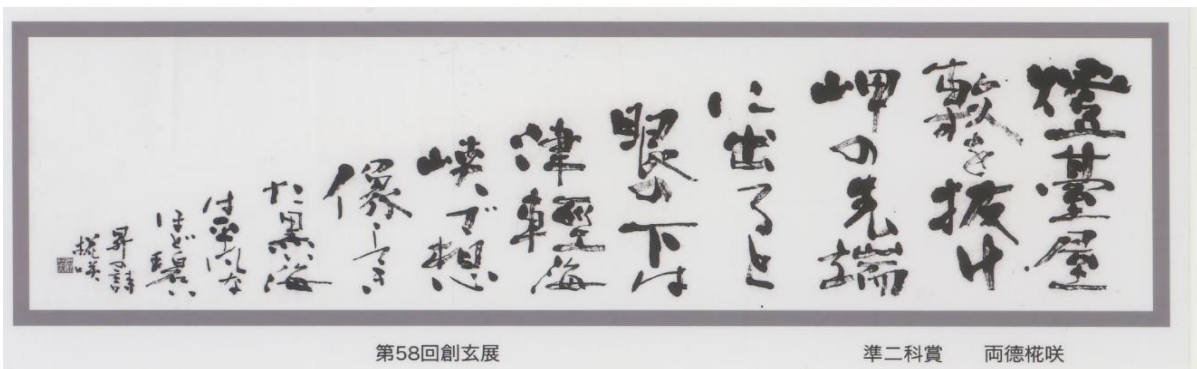 燈臺屋
敷を抜け
岬の先端
に出ると
眼の下は
津軽海
峡、で想
像してき
た黒い海
は平凡な
ほど碧い
昇の詩
椛咲
第58回創玄展
準二科賞 両德椛咲